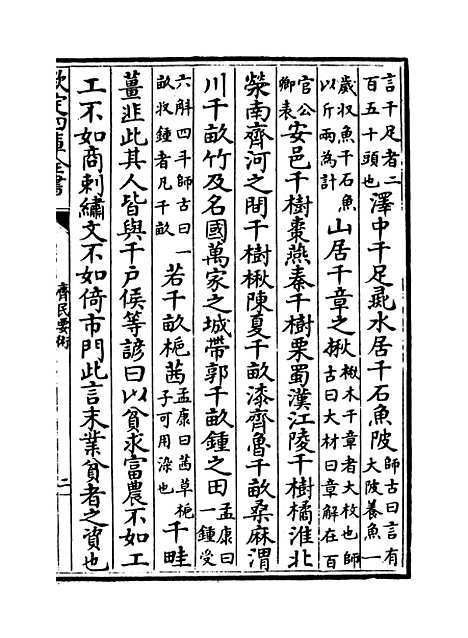 言千足者二
百五十頭也
澤中千足彘水居千石魚陂
師古曰言有
大陂養魚一
歲収魚千石魚
以斤兩為計
山居千章之
楸木千章者大枚也師
古曰大材曰章解在百
官公
卿表
安邑千樹棗燕秦千樹栗蜀漢江陵千樹橘淮北
滎南齊河之間千樹楸陳夏千畝漆齊魯千畝桑麻渭
川千畝竹及名國萬家之城帶郭千畝鍾之田
孟康曰
一鍾受
六斛四斗師古曰一
畝収鍾者凡千畝
若千畝梔茜
孟康曰茜草梔
子可用染也
千畦
薑韮此其人皆與千戸侯等諺曰以貧求富農不如工
工不如商刺繡文不如倚市門此言末業貧者之資也
欽定四庫全書
齊民要術
二